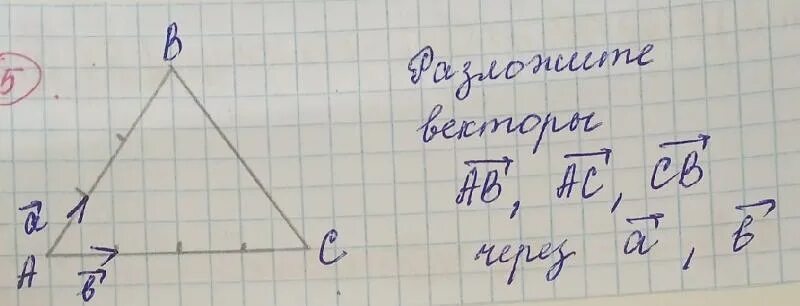 5
B
a
A
b
C
Разложите
векторы
AB, AC, CB
через a, b